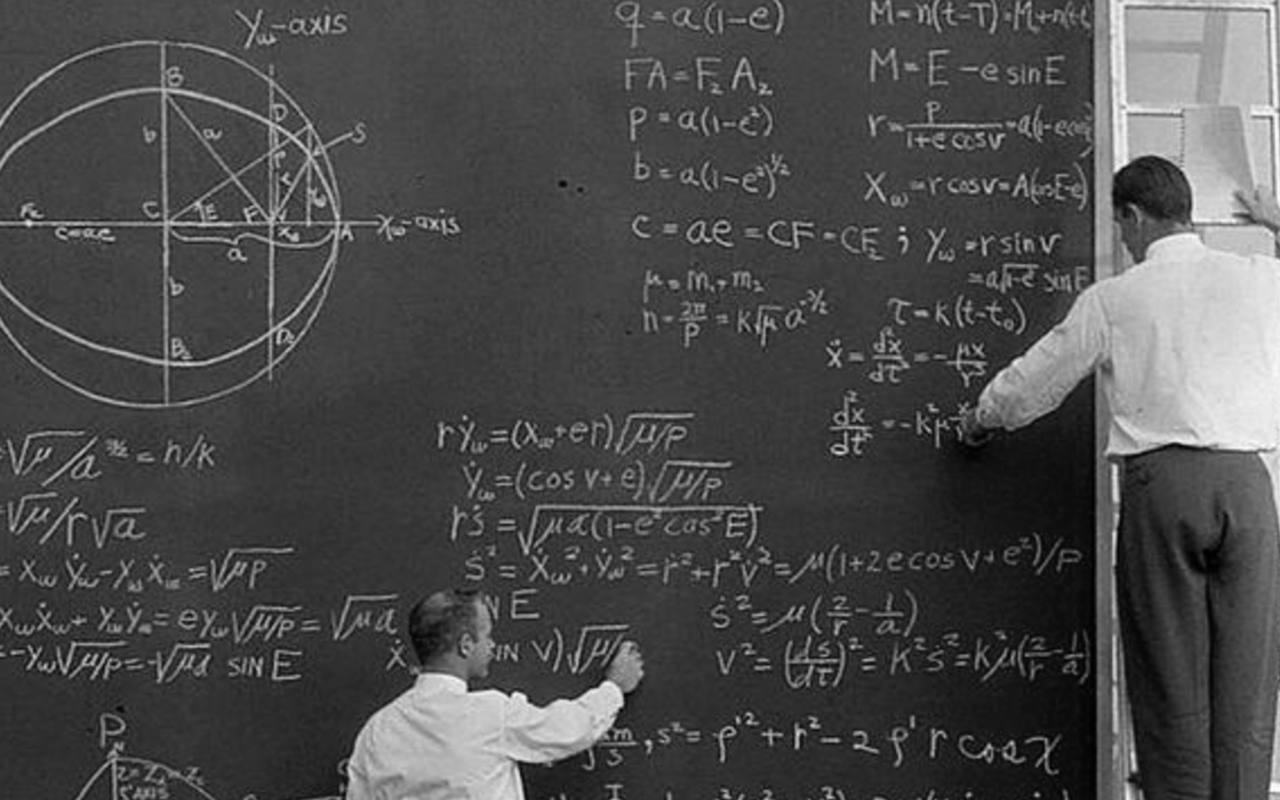 Yω-axis
B
b
a
D
S
C
E
F
xω
A
Xω-axis
F2
c=ae
a
b
B2
D2
q = a(1-e)
FA = F2 A2
p = a(1-e²)
b = a(1-e²)^1/2
c = ae = CF = CF2 ; yω = r sin v
= a√1-e² sin E
μ = m1 + m2
n = 2π/P = k√μ a^-3/2
M = n(t-T) = M + n(t-t
M = E - e sin E
r = p/1+e cos v = a(1-e cos
Xω = r cos v = A(cos E-e)
τ = k(t-t0)
ẍ = d²x/dτ² = - μx/r³
d²x/dt² = -k²μ x
√μ/a^3/2 = n/k
√μ/r√a
= Xω Ẏω - Yω Ẋω = √μp
XωẊω + YωẎω = eYω√μ/p = √μa
= -Yω√μ/p = -√μa SIN E
rẎω = (Xω+er)√μ/p
Ẏω = (cos v + e)√μ/p
rṡ = √μa(1-e² cos² E)
ṡ² = Ẋω² + Ẏω² = ṙ² + r²v̇² = μ(1+2e cos v + e²)/p
N E
ṡ² = μ(2/r - 1/a)
Ẋ
IN V)√μ/
V² = (ds/dt)² = K²ṡ² = K²μ(2/r - 1/a)
m/s , s² = ρ'² + r² - 2 ρ' r cos χ
P
AXIS